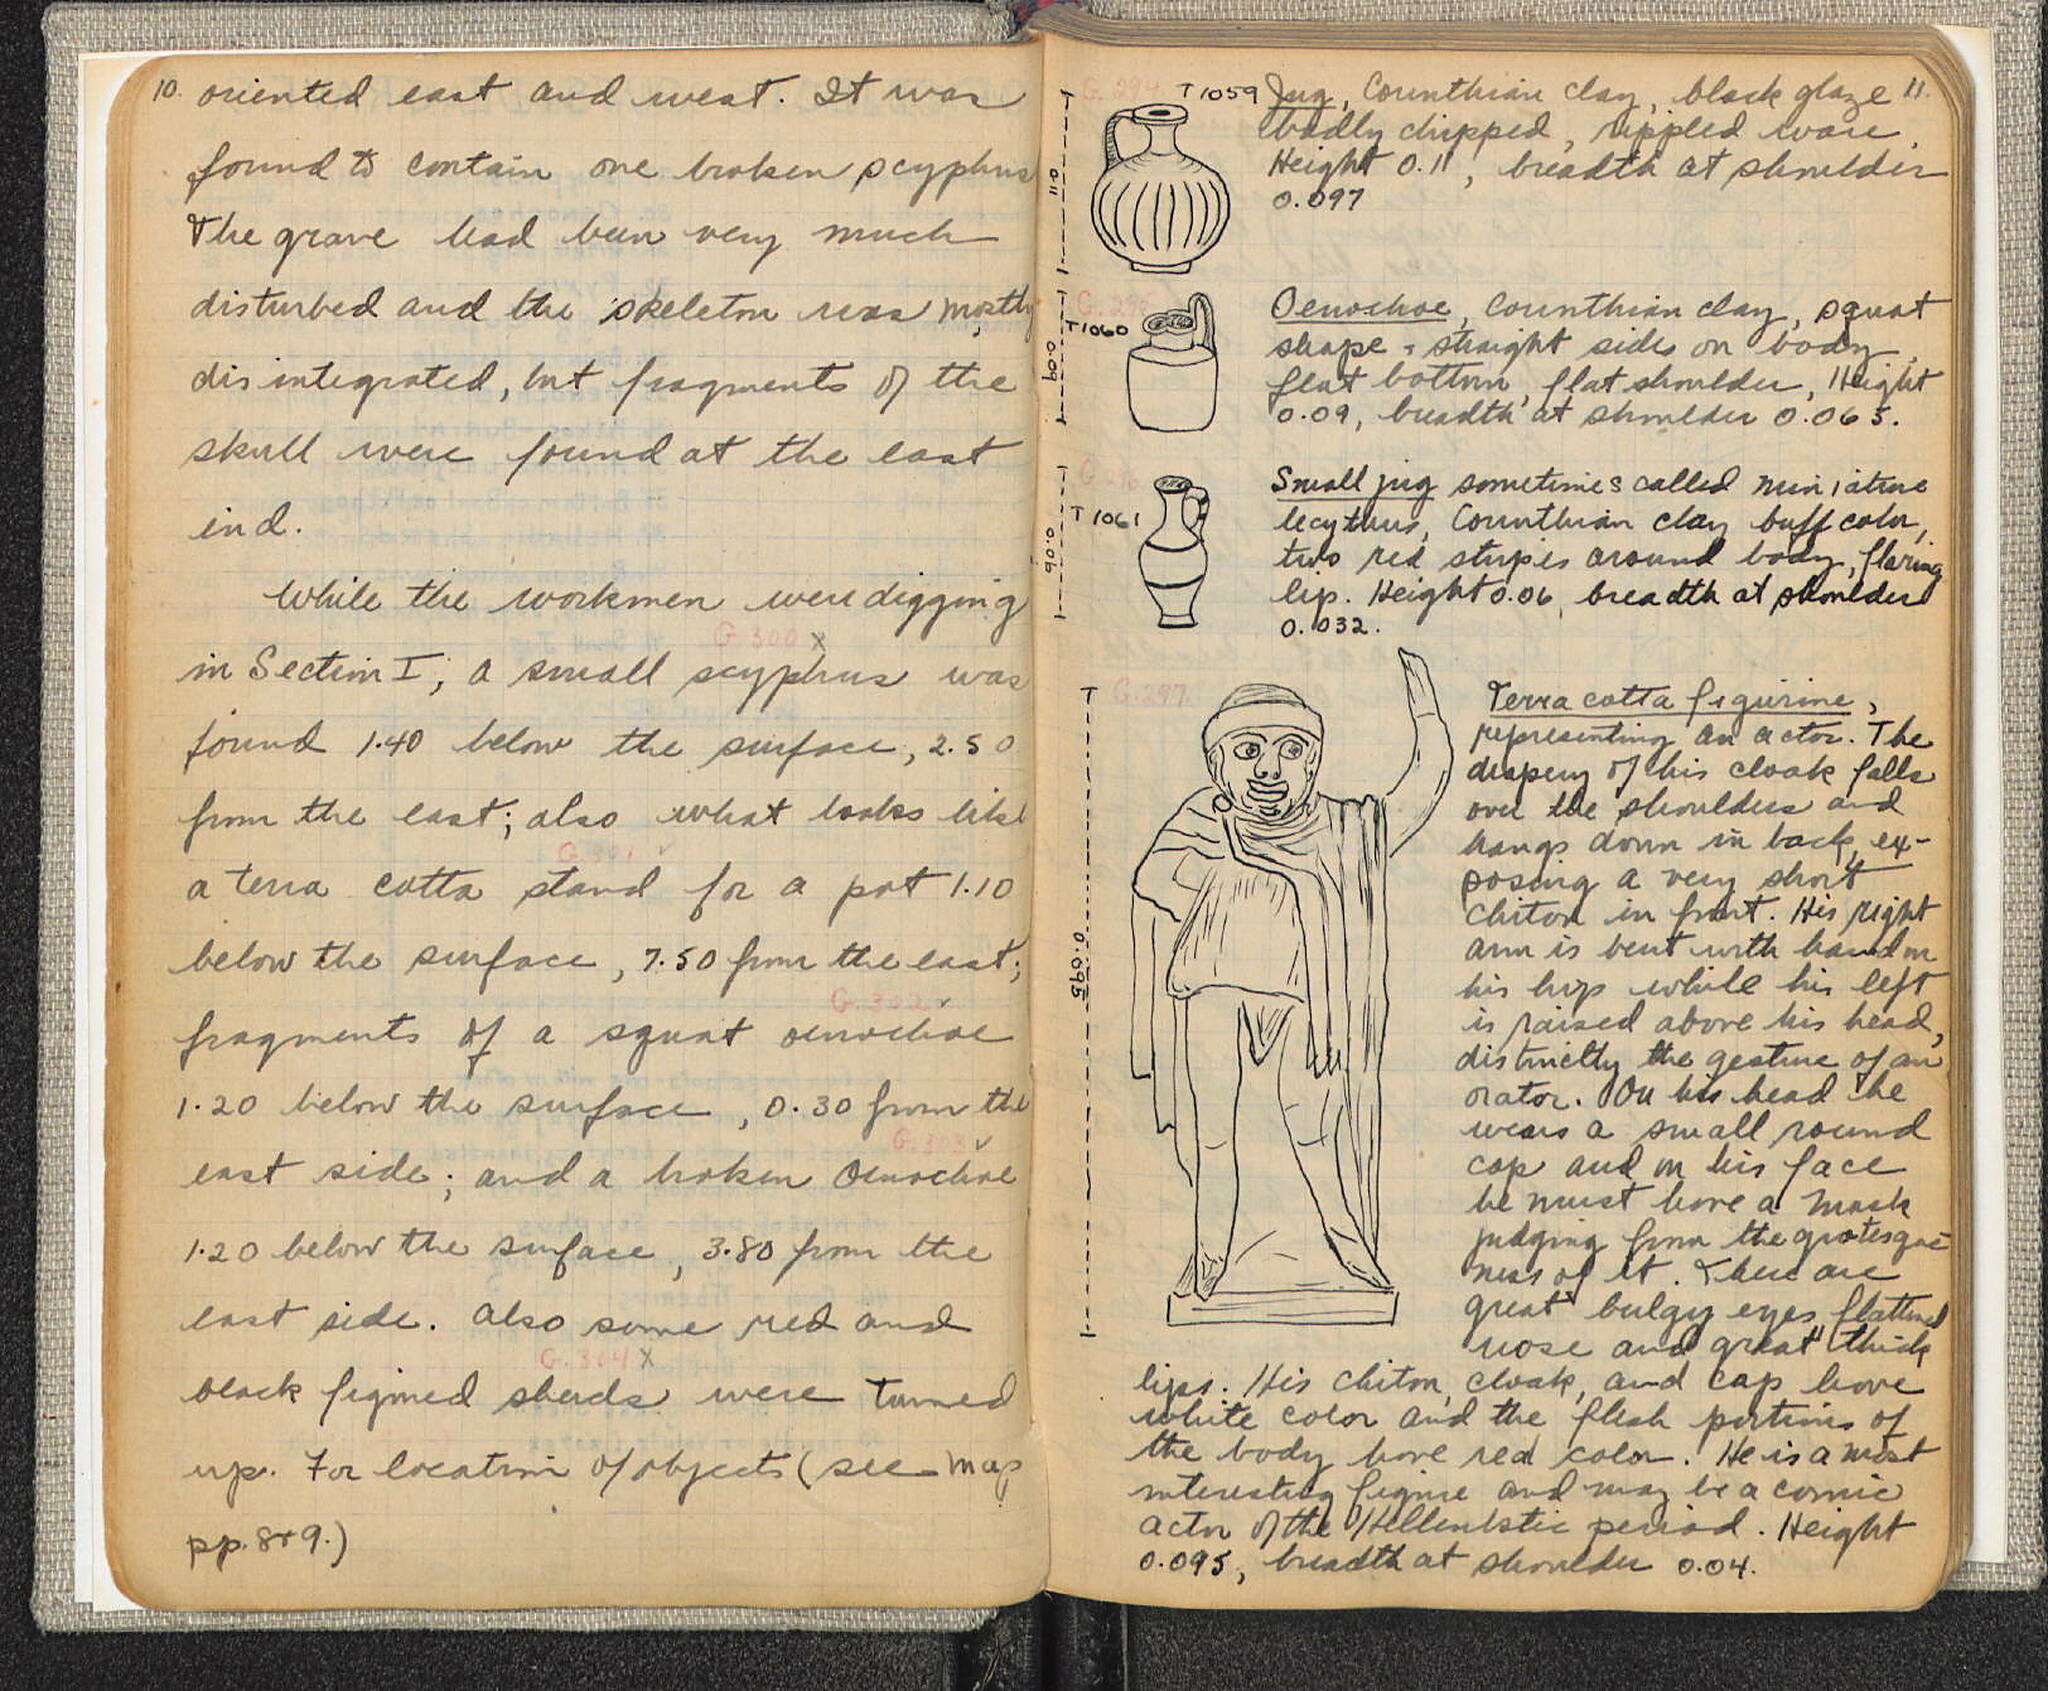 10.
oriented east and west. It was
found to contain one broken scyphus
The grave had been very much
disturbed and the skeleton was mostly
disintegrated, but fragments of the
skull were found at the east
end.
While the workmen were digging
G 300 x
in Section I, a small scyphus was
found 1.40 below the surface, 2.50
from the east; also what looks like
G 301 ✓
a terra cotta stand for a pot 1.10
below the surface, 7.50 from the east;
G. 302 ✓
fragments of a squat oenochoe
1.20 below the surface, 0.30 from the
G. 303 ✓
east side; and a broken Oenochoe
1.20 below the surface, 3.80 from the
east side. Also some red and
G. 304 X
black figured sherds were turned
up. For location of objects (see map
pp. 8+9.)
11.
G. 294
T 1059
0.11
Jug, Corinthian clay, black glaze
badly chipped, rippled ware.
Height 0.11, breadth at shoulder
0.097
G. 295
T 1060
0.09
Oenochoe, Corinthian clay, squat
shape, straight sides on body,
flat bottom, flat shoulder, Height
0.09, breadth at shoulder 0.065.
G. 296
T 1061
0.06
Small jug sometimes called miniature
lecythus, Corinthian clay buff color,
two red stripes around body, flaring
lip. Height 0.06, breadth at shoulder
0.032.
G. 297
0.095
Terra cotta figurine,
representing an actor. The
drapery of his cloak falls
over the shoulders and
hangs down in back, ex-
posing a very short
chiton in front. His right
arm is bent with hand on
his hip while his left
is raised above his head,
distinctly the gesture of an
orator. On his head he
wears a small round
cap and on his face
he must have a mask
judging from the grotesque
ness of it. There are
great bulgy eyes, flattened
nose and great thick
lips. His chiton, cloak, and cap have
white color and the flesh portions of
the body have red color. He is a most
interesting figure and may be a comic
actor of the Hellenistic period. Height
0.095, breadth at shoulder 0.04.